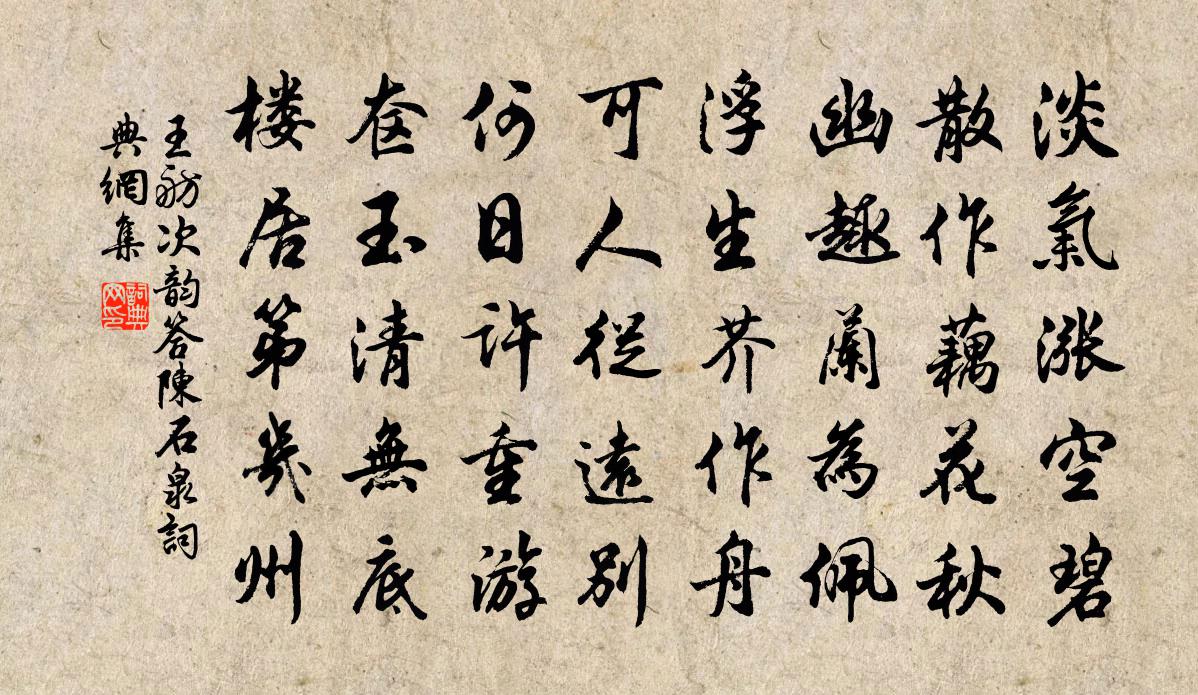 淡氣漲空碧
散作藕花秋
幽趣蘭為佩
浮生芥作舟
可人從遠別
何日許重游
奁玉清無底
楼居第幾州
王舫次韵答陳石泉詞
典網集
詞典
网印